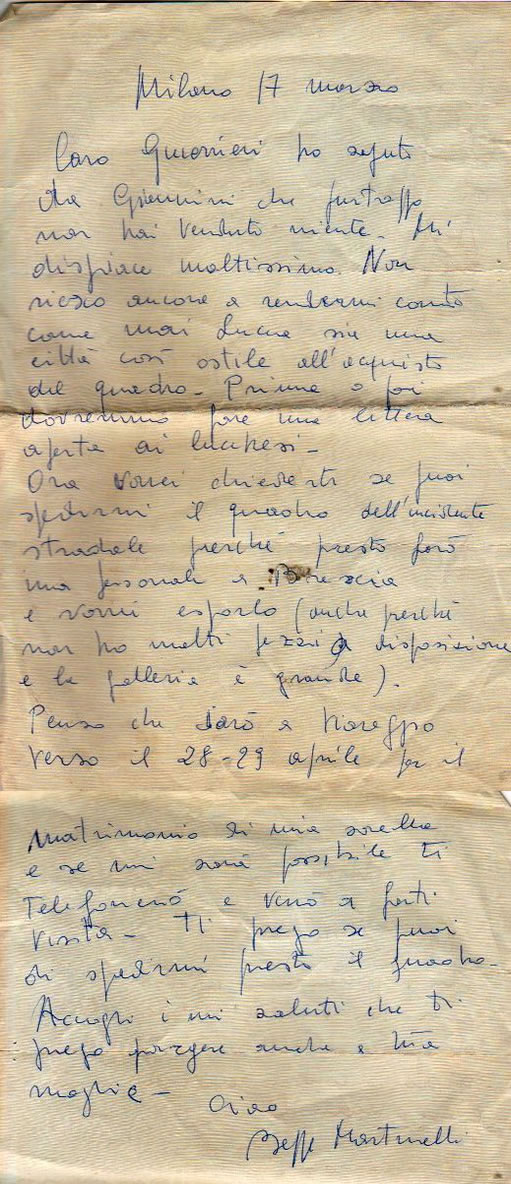 Milano 17 marzo
Caro Guarnieri ho saputo
da Giannini che purtroppo
non hai venduto niente. Mi
dispiace moltissimo. Non
riesco ancora a rendermi conto
come mai Lucca sia una
città così ostile all'acquisto
del quadro. Prima o poi
dovremmo fare una lettera
aperta ai lucchesi -
Ora vorrei chiederti se puoi
spedirmi il quadro dell'incidente
stradale perché presto farò
una personale a Brescia
e vorrei esporlo (anche perché
non ho molti pezzi a disposizione
e la galleria è grande).
Penso che sarò a Viareggio
verso il 28-29 aprile per il
matrimonio di mia sorella
e se mi sarà possibile ti
telefonerò e verrò a farti
visita - Ti prego se puoi
di spedirmi presto il quadro -
Accogli i mi saluti che ti
prego porgere anche a tua
moglie -
Ciao
Beppe Martinelli